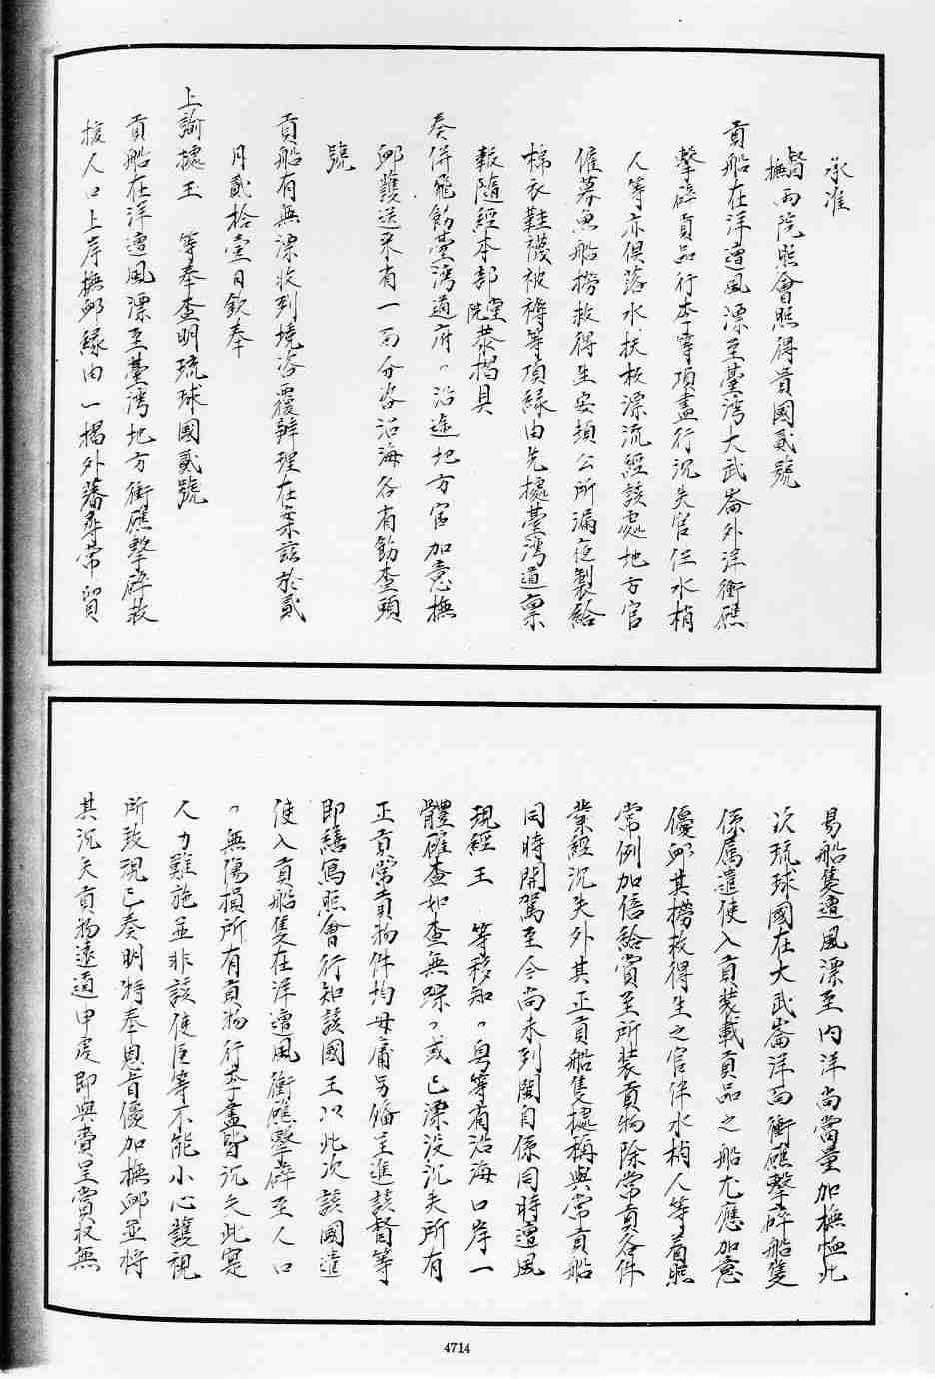 承准
督撫兩院照會照得貴國貳號
貢船在洋遭風漂至臺灣大武崙外洋衝礁
擊碎貢品行李等項盡行沉失官伴水梢
人等亦俱落水扶板漂流經該處地方官
僱募魚船撈救得生安頓公所漏夜製給
棉衣鞋襪被褥等項緣由先據臺灣道稟
報隨經本部堂院恭摺具
奏併飛飭臺灣道府〃沿途地方官加意撫
卹護送來省一面分咨沿海各省飭查頭
號
貢船有無漂收到境咨覆辦理在案茲於貳
月貳拾壹日欽奉
上諭據玉　等奉查明琉球國貳號
貢船在洋遭風漂至臺灣地方衝礁擊碎救
援人口上岸撫卹緣由一摺外藩尋常貿
易船隻遭風漂至內洋尚當量加撫恤此
次琉球國在大武崙洋面衝礁擊碎船隻
係屬遣使入貢裝載貢品之船尤應加意
優卹其撈救得生之官伴水梢人等着照
常例加倍給賞至所裝貢物除常貢各件
業經沉失外其正貢船隻據稱與常貢船
同時開駕至今尚未到閩自係同時遭風
現經玉　等移知〃粵等省沿海口岸一
體確查如查無踪〃或已漂沒沉失所有
正貢常貢物件均毋庸另備呈進該督等
即繕寫照會行知該國王以此次該國遣
使入貢船隻在洋遭風衝礁擊碎至人口
〃無傷損所有貢物行李盡皆沉失此寔
人力難施並非該使臣等不能小心護視
所致現已奏明特奉恩旨優加撫卹並將
其沉失貢物遠道申虔即與賫呈賞收無
4714